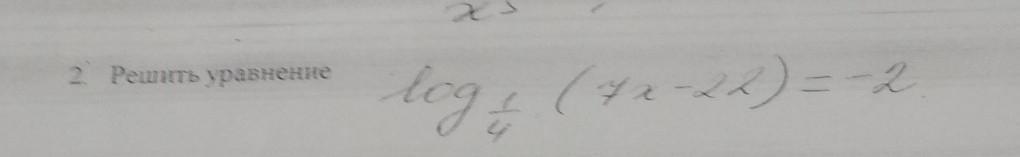 x >
2. Решить уравнение log_{1/4} (7x-22) = -2